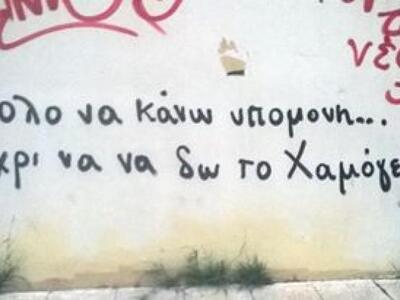 ολο να κάνω υπομονη...
χρι να να δω το Χαμόγε
νέο